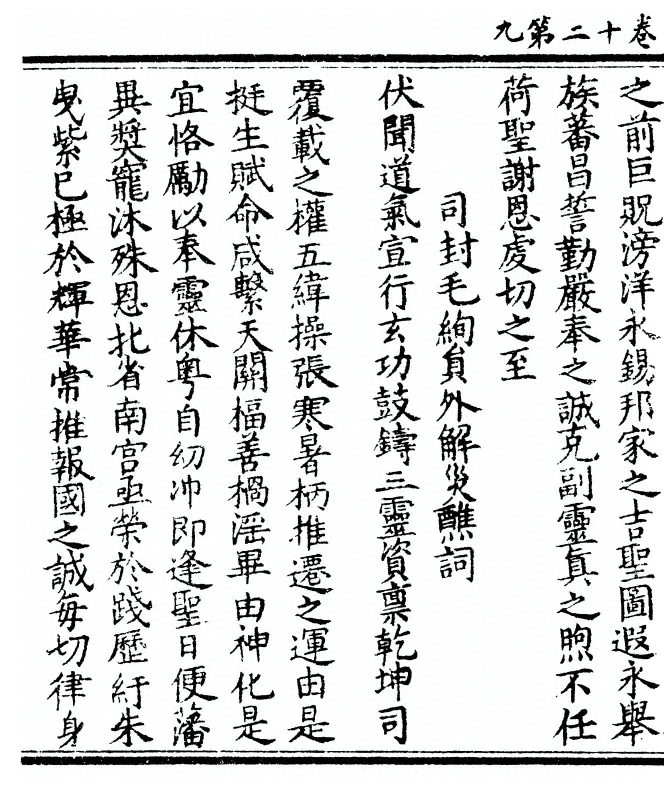 卷十二第九
之前巨貺滂洋永錫邦家之吉聖圖遐永舉
族蕃昌誓勤嚴奉之誠克副靈真之煦不任
荷聖謝恩虔切之至
司封毛絢貟外解災醮詞
伏聞道氣宣行玄功鼓鑄三靈資稟乾坤司
覆載之權五緯操張寒暑柄推遷之運由是
挺生賦命咸繫天關福善禍淫畢由神化是
宜恪勵以奉靈休粤自幼冲即逢聖日便藩
異獎寵沐殊恩北省南宫亟榮於踐歷紆朱
曳紫已極於輝華常推報國之誠每切律身